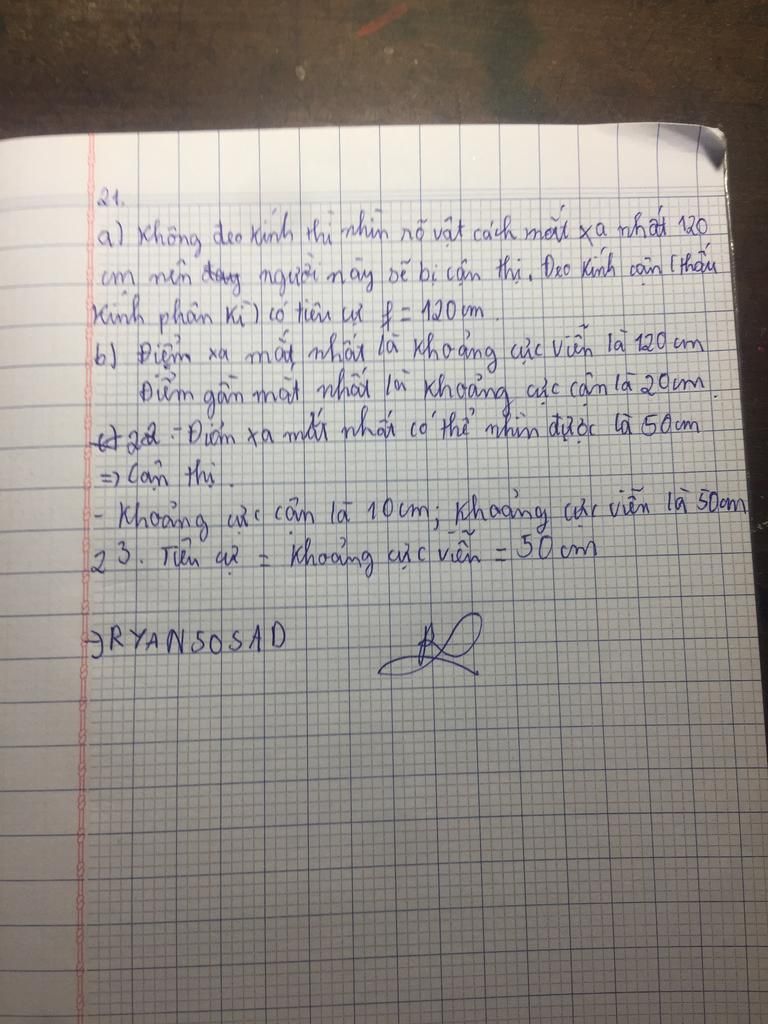 21.
a) Không đeo kính thì nhìn rõ vật cách mắt xa nhất 120
cm nên người này sẽ bị cận thị. Đeo kính cận (thấu
kính phân kì) có tiêu cự f = 120cm.
b) Điểm xa mắt nhất là khoảng cực viễn là 120cm
Điểm gần mắt nhất là khoảng cực cận là 20cm.
22 - Điểm xa mắt nhất có thể nhìn được là 50cm
=> Cận thị.
- Khoảng cực cận là 10cm; Khoảng cực viễn là 50cm
23. Tiêu cự = khoảng cực viễn = 50cm
→RYANSOSAD